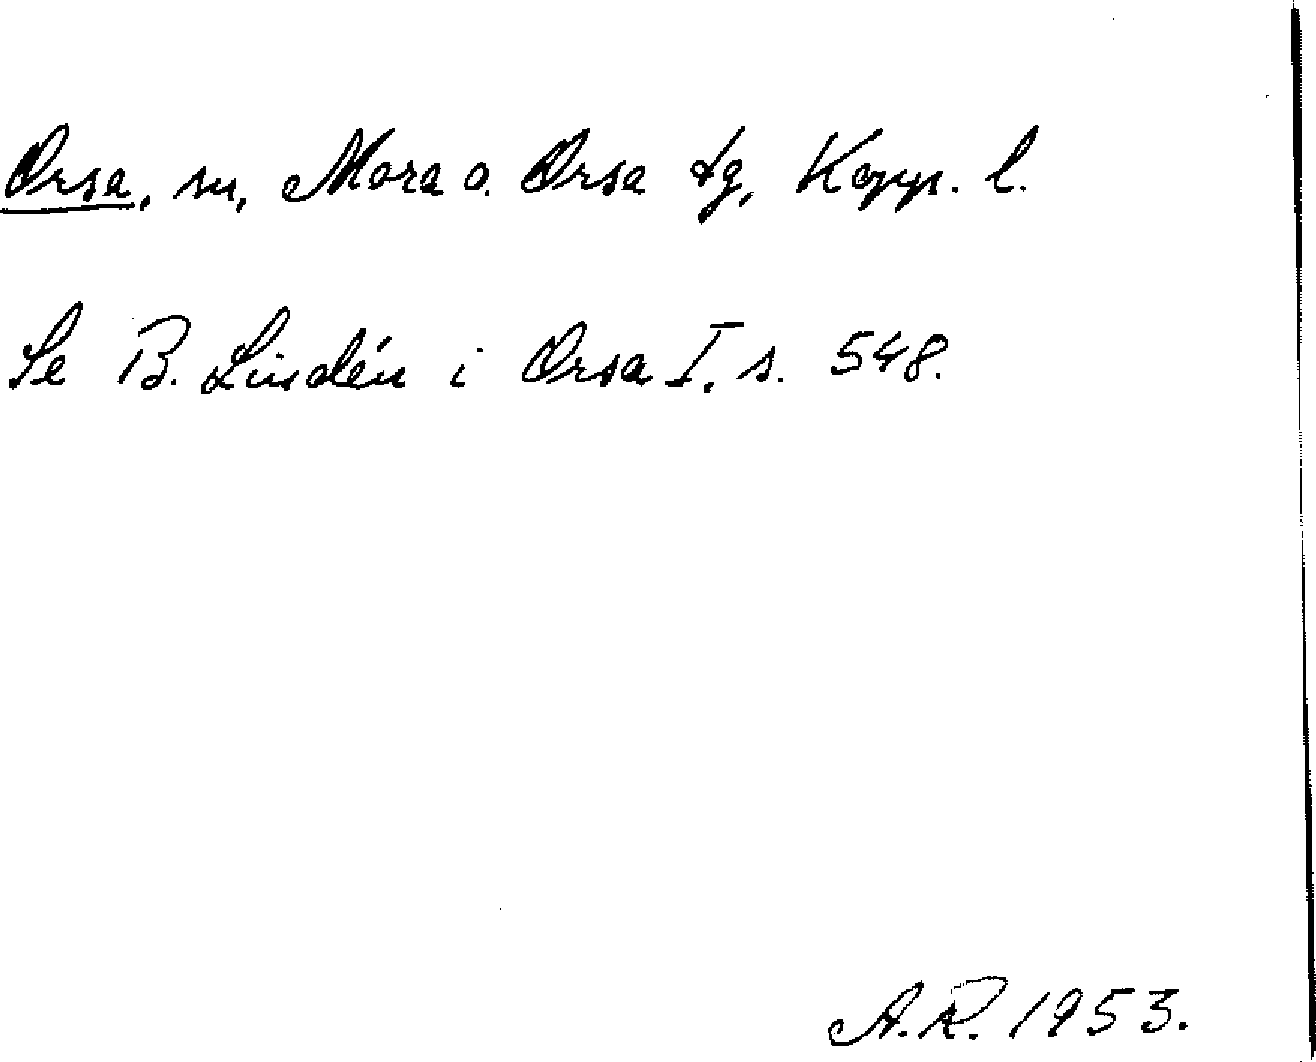 Orsa, sn, Mora o. Orsa tg, Kopp. l.
Se B. Lindén i Orsa I, s. 548.
A.R. 1953.